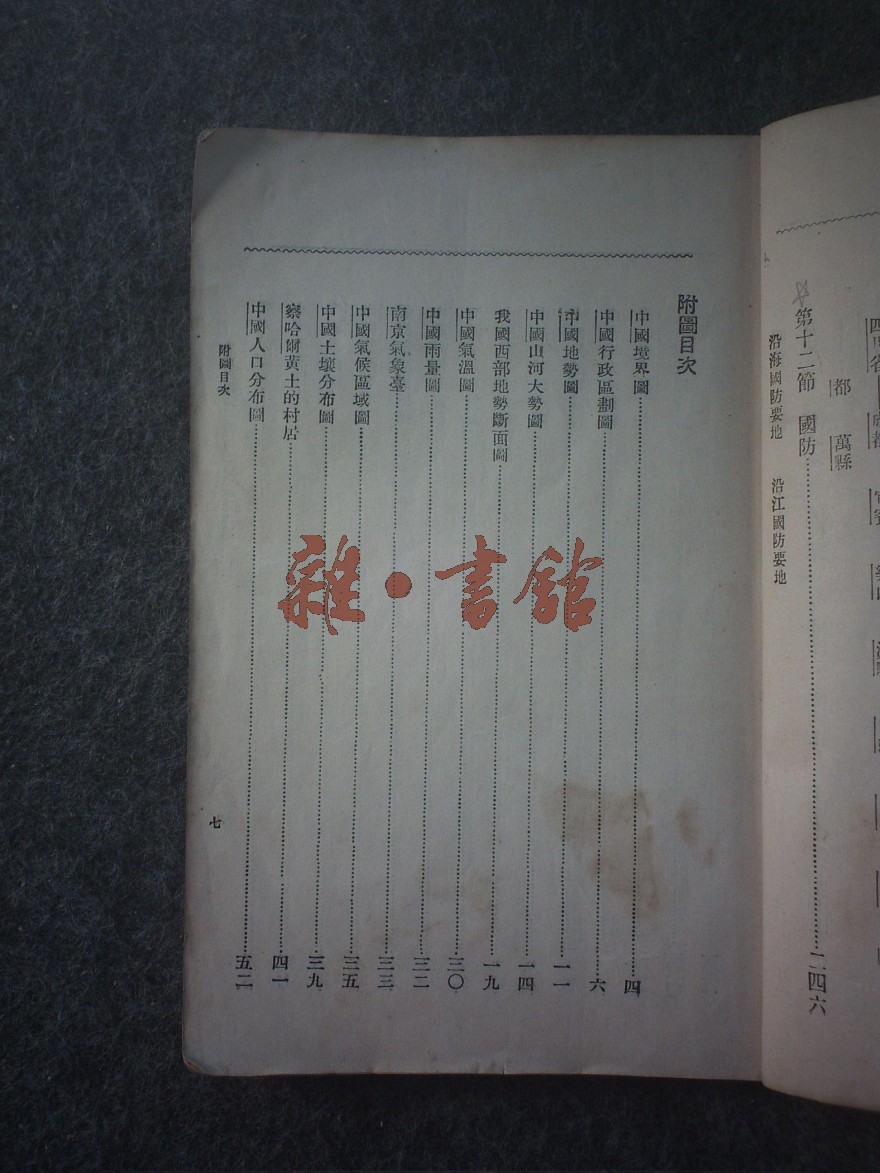 四川省
都 萬縣
第十二節 國防……二四六
沿海國防要地 沿江國防要地
附圖目次
中國境界圖……四
中國行政區劃圖……六
中國地勢圖……一一
中國山河大勢圖……一四
我國西部地勢斷面圖……一九
中國氣溫圖……三〇
中國雨量圖……三二
南京氣象臺……三三
中國氣候區域圖……三五
中國土壤分布圖……三九
察哈爾黃土的村居……四一
中國人口分布圖……五二
附圖目次
七
雜·書館